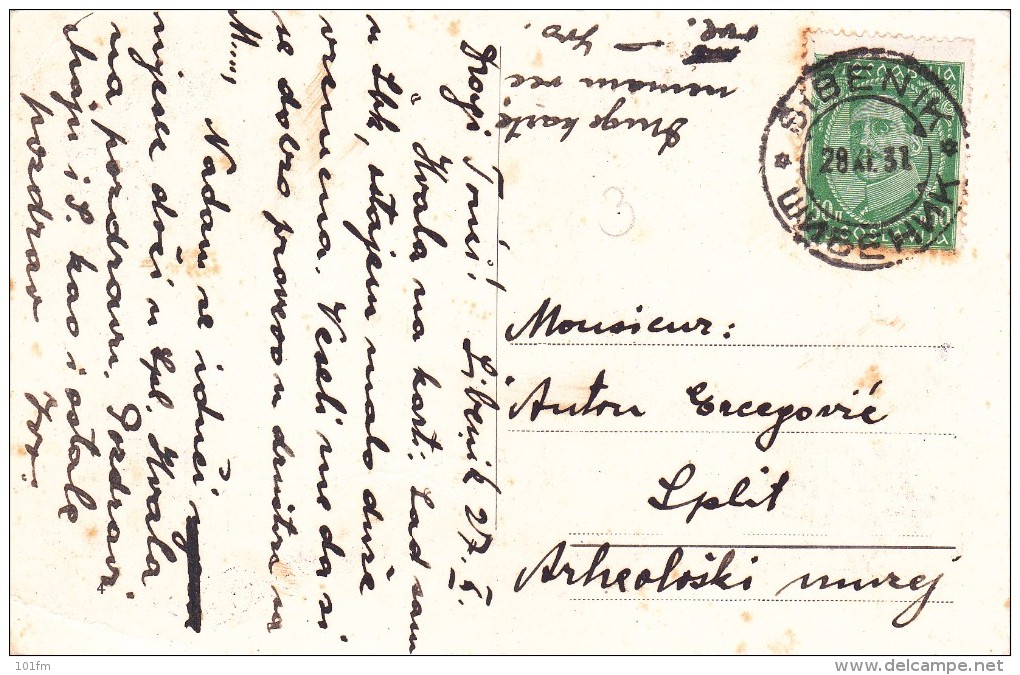 Dragi Tonći! Šibenik 27. X.
Hvala na karti. Sad sam
u Šbk, ostajem malo duže
vremena. Veseli me da si
se dobro proveo u društvu sa
M....,
Nadam se idući
mjesec doći u Spl. Hvala
na pozdravu. Pozdravi
Maju i S. kao i ostale
pozdrav Ivo
Druge karte
nemam već
ove. – Ivo.
3
ŠIBENIK
28 XI. 31
ШИБЕНИК
Monsieur:
Anton Ercegović
Split
Arheološki muzej
4
101fm
delcampe.net